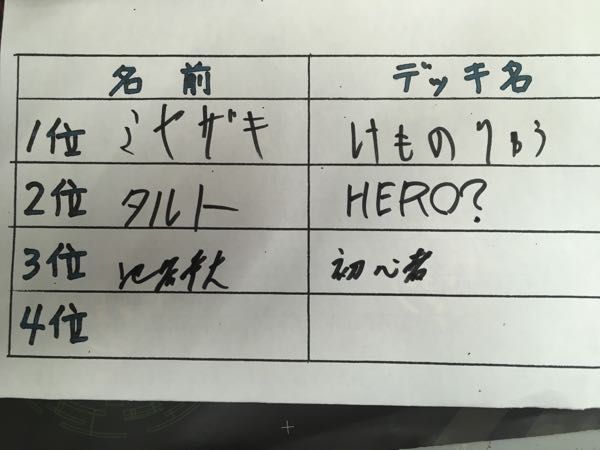 名前 デッキ名
1位 ミヤザキ けものりゅう
2位 タルト HERO?
3位 初心者
4位